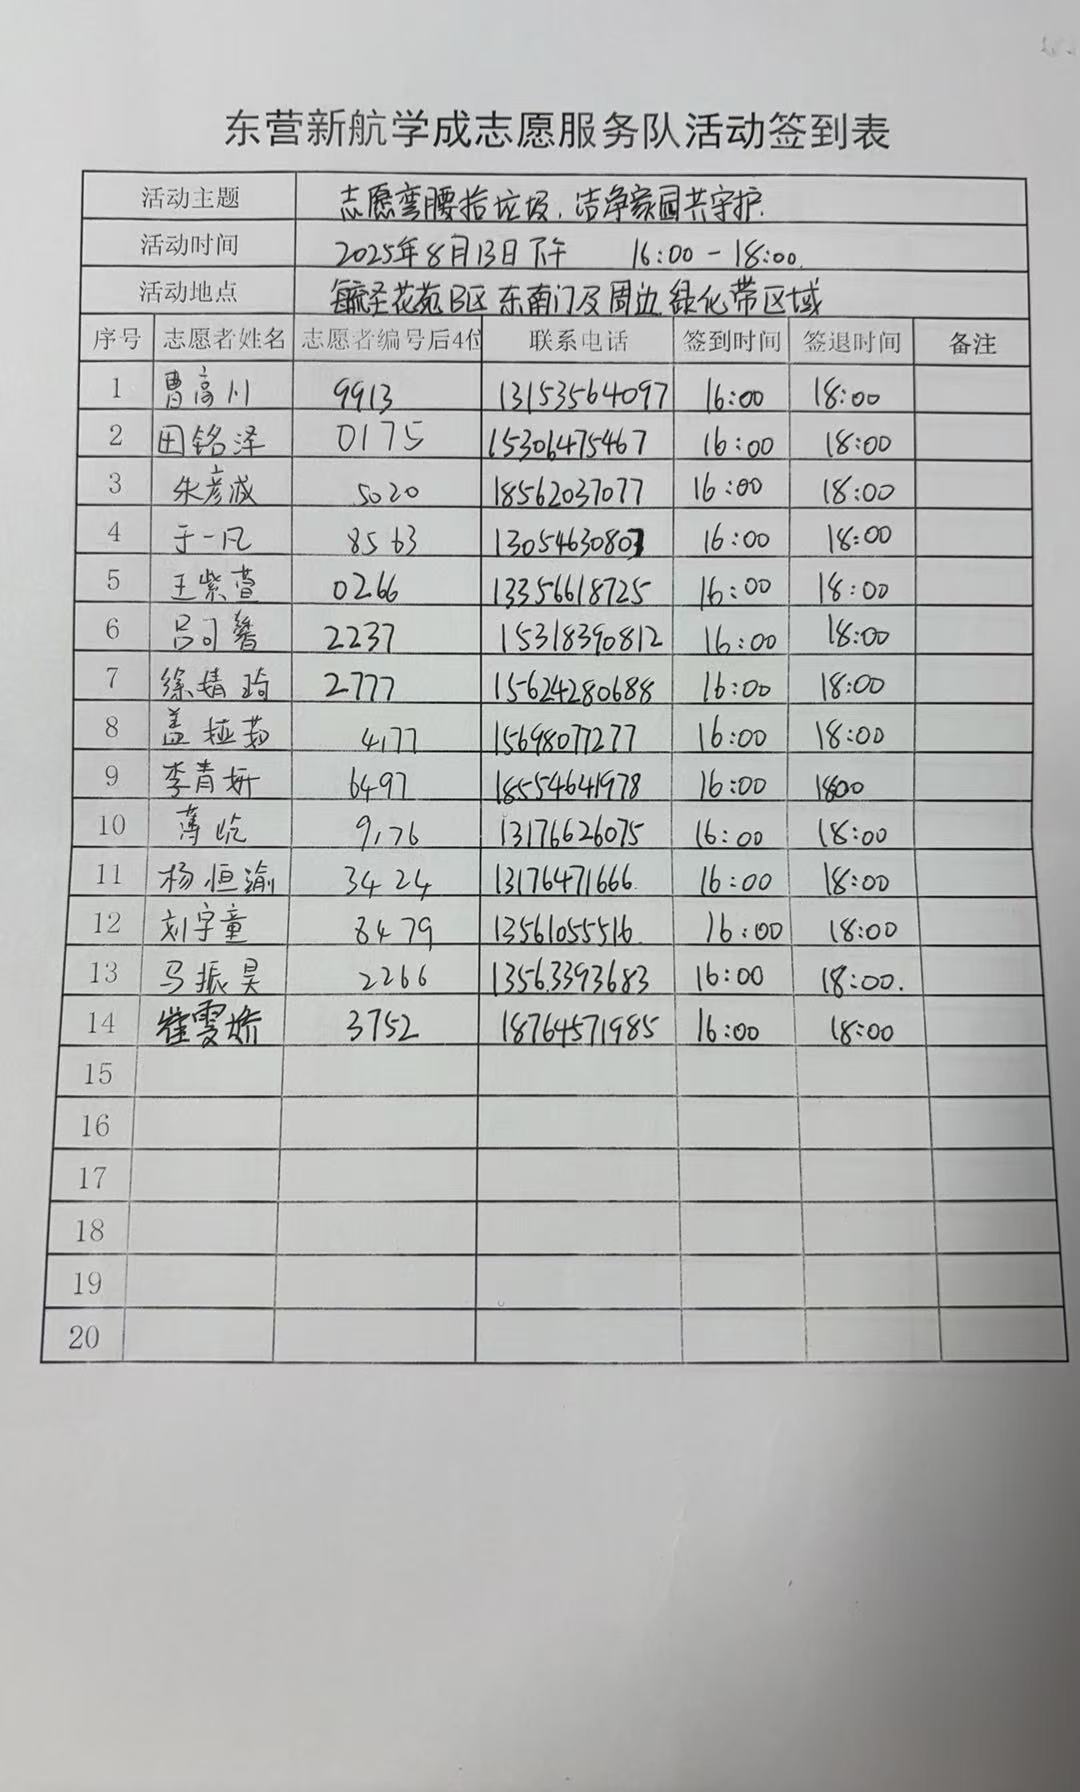 东营新航学成志愿服务队活动签到表
活动主题 志愿弯腰拾垃圾,洁净家园共守护.
活动时间 2025年8月13日下午 16:00-18:00.
活动地点 毓圣花苑B区东南门及周边绿化带区域
序号 志愿者姓名 志愿者编号后4位 联系电话 签到时间 签退时间 备注
1 曹高川 9913 13153564097 16:00 18:00
2 田铭泽 0175 15306475467 16:00 18:00
3 朱彦诚 5020 18562037077 16:00 18:00
4 于一凡 8563 13054630803 16:00 18:00
5 王紫萱 0266 13356618725 16:00 18:00
6 吕可馨 2237 15318390812 16:00 18:00
7 徐婧琦 2777 15624280688 16:00 18:00
8 盖桠茹 4177 15698077277 16:00 18:00
9 李青妍 6497 18554641978 16:00 1800
10 薄屹 9176 13176626075 16:00 18:00
11 杨恒渝 3424 13176471666. 16:00 18:00
12 刘宇童 8479 13561055516. 16:00 18:00
13 马振昊 2266 13563393683 16:00 18:00.
14 崔雯娇 3752 18764571985 16:00 18:00
15
16
17
18
19
20